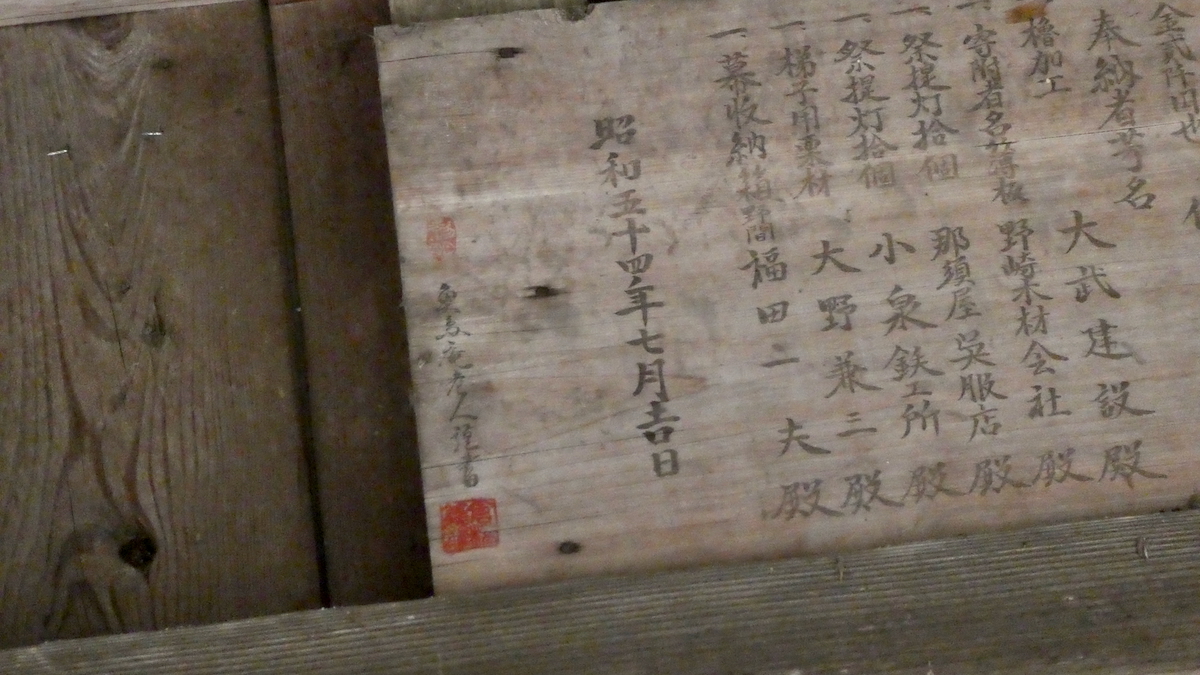 奉納者芳名
一 櫓加工 大武建設殿
一 寄附者名 薄板 野崎木材会社殿
一 祭提灯拾個 那須屋呉服店殿
一 祭提灯拾個 小泉鉄工所殿
一 梯子用栗材 大野兼三殿
一 幕収納箱 福田二夫殿
昭和五十四年七月吉日
老人謹書